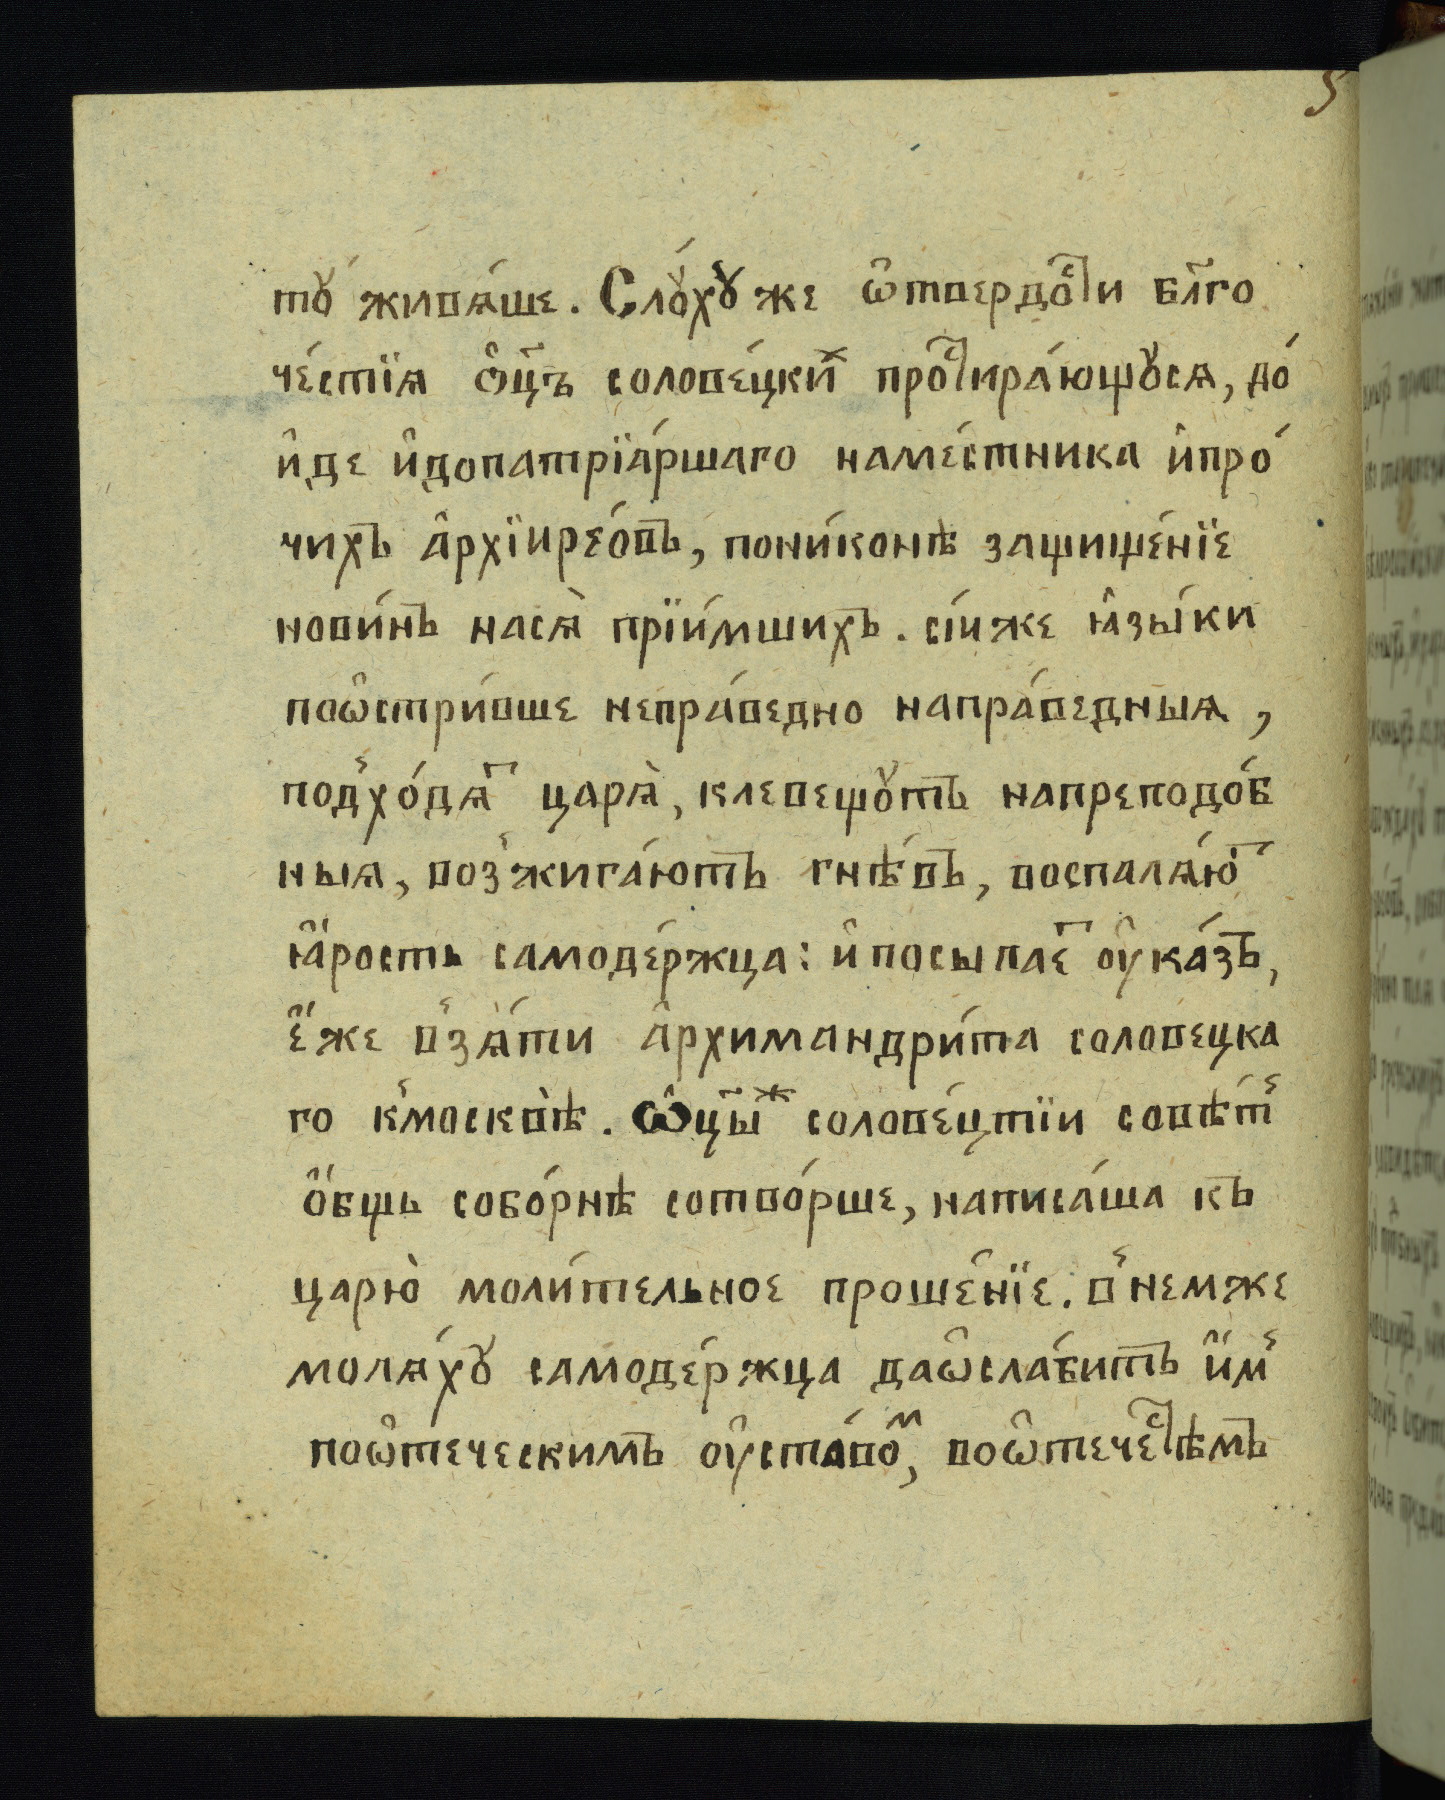 5
тꙋ́ живѧ́ше. Слꙋ́хꙋ же ѡ҆твердо́сⷭ҇ти бл҃го
че́стїѧ ѻ҆ц҃ъ солове́цкиⷯ просⷭ҇тира́ющꙋсѧ, до́
и҆де и҆допатрїа́ршаго наме́стника и҆про́
чихъ а҆рхїирео́въ, пони́конѣ защище́нїе
нови́нъ насѧ̀ прїи́мшихъ. сі́иже ꙗ҆зы́ки
поѡ҆стри́вше непра́ведно напра́ведныѧ,
под̾хо́дѧⷮ царѧ̀, клевещꙋ́тъ напреподо́б
ныѧ, воз̾жига́ютъ гнѣ́въ, воспалѧ́юⷮ
ꙗ҆́рость самоде́ржца: и҆ посылаеⷮ ᲂу҆ка́зъ,
є҆́же в̾зѧ́ти а҆рхимандри́та соловецка
го к̾москвѣ̀. Ѡ҆ц҃ыⷤ солове́цтїи совѣ́т̾
ѻ҆́бщь собо́рнѣ сотво́рше, написа́ша къ
царю̀ моли́тельное проше́нїе. в̾немже
молѧ́хꙋ самоде́ржца даѡ҆сла́битъ и҆́м̾
поѡ҆теческимъ ᲂу҆ста́воⷨ, воѡ҆тече́сⷭ҇тѣмъ